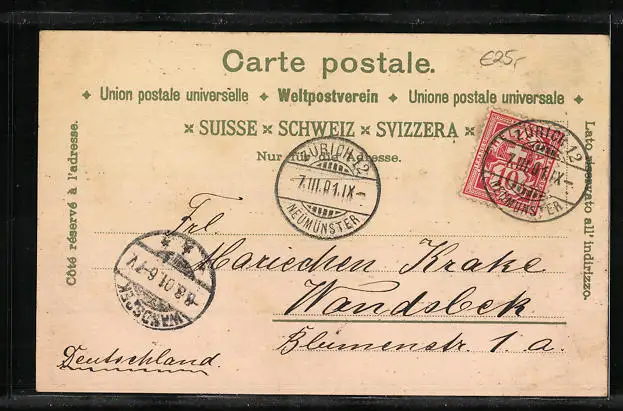 Carte postale.
€25,-
Union postale universelle Weltpostverein Unione postale universale
SUISSE SCHWEIZ SVIZZERA
Nur für die Adresse.
Côté réservé à l'adresse.
Lato riservato all' indirizzo.
ZÜRICH 12
7.III.01.IX-
NEUMÜNSTER
ZÜRICH 12
7.III.01.IX-
NEUMÜNSTER
10
Frl.
Mariechen Krake
Wandsbek
Blumenstr. 1. a.
Deutschland.
WANDSBEK
8.3.01.6-7 V.